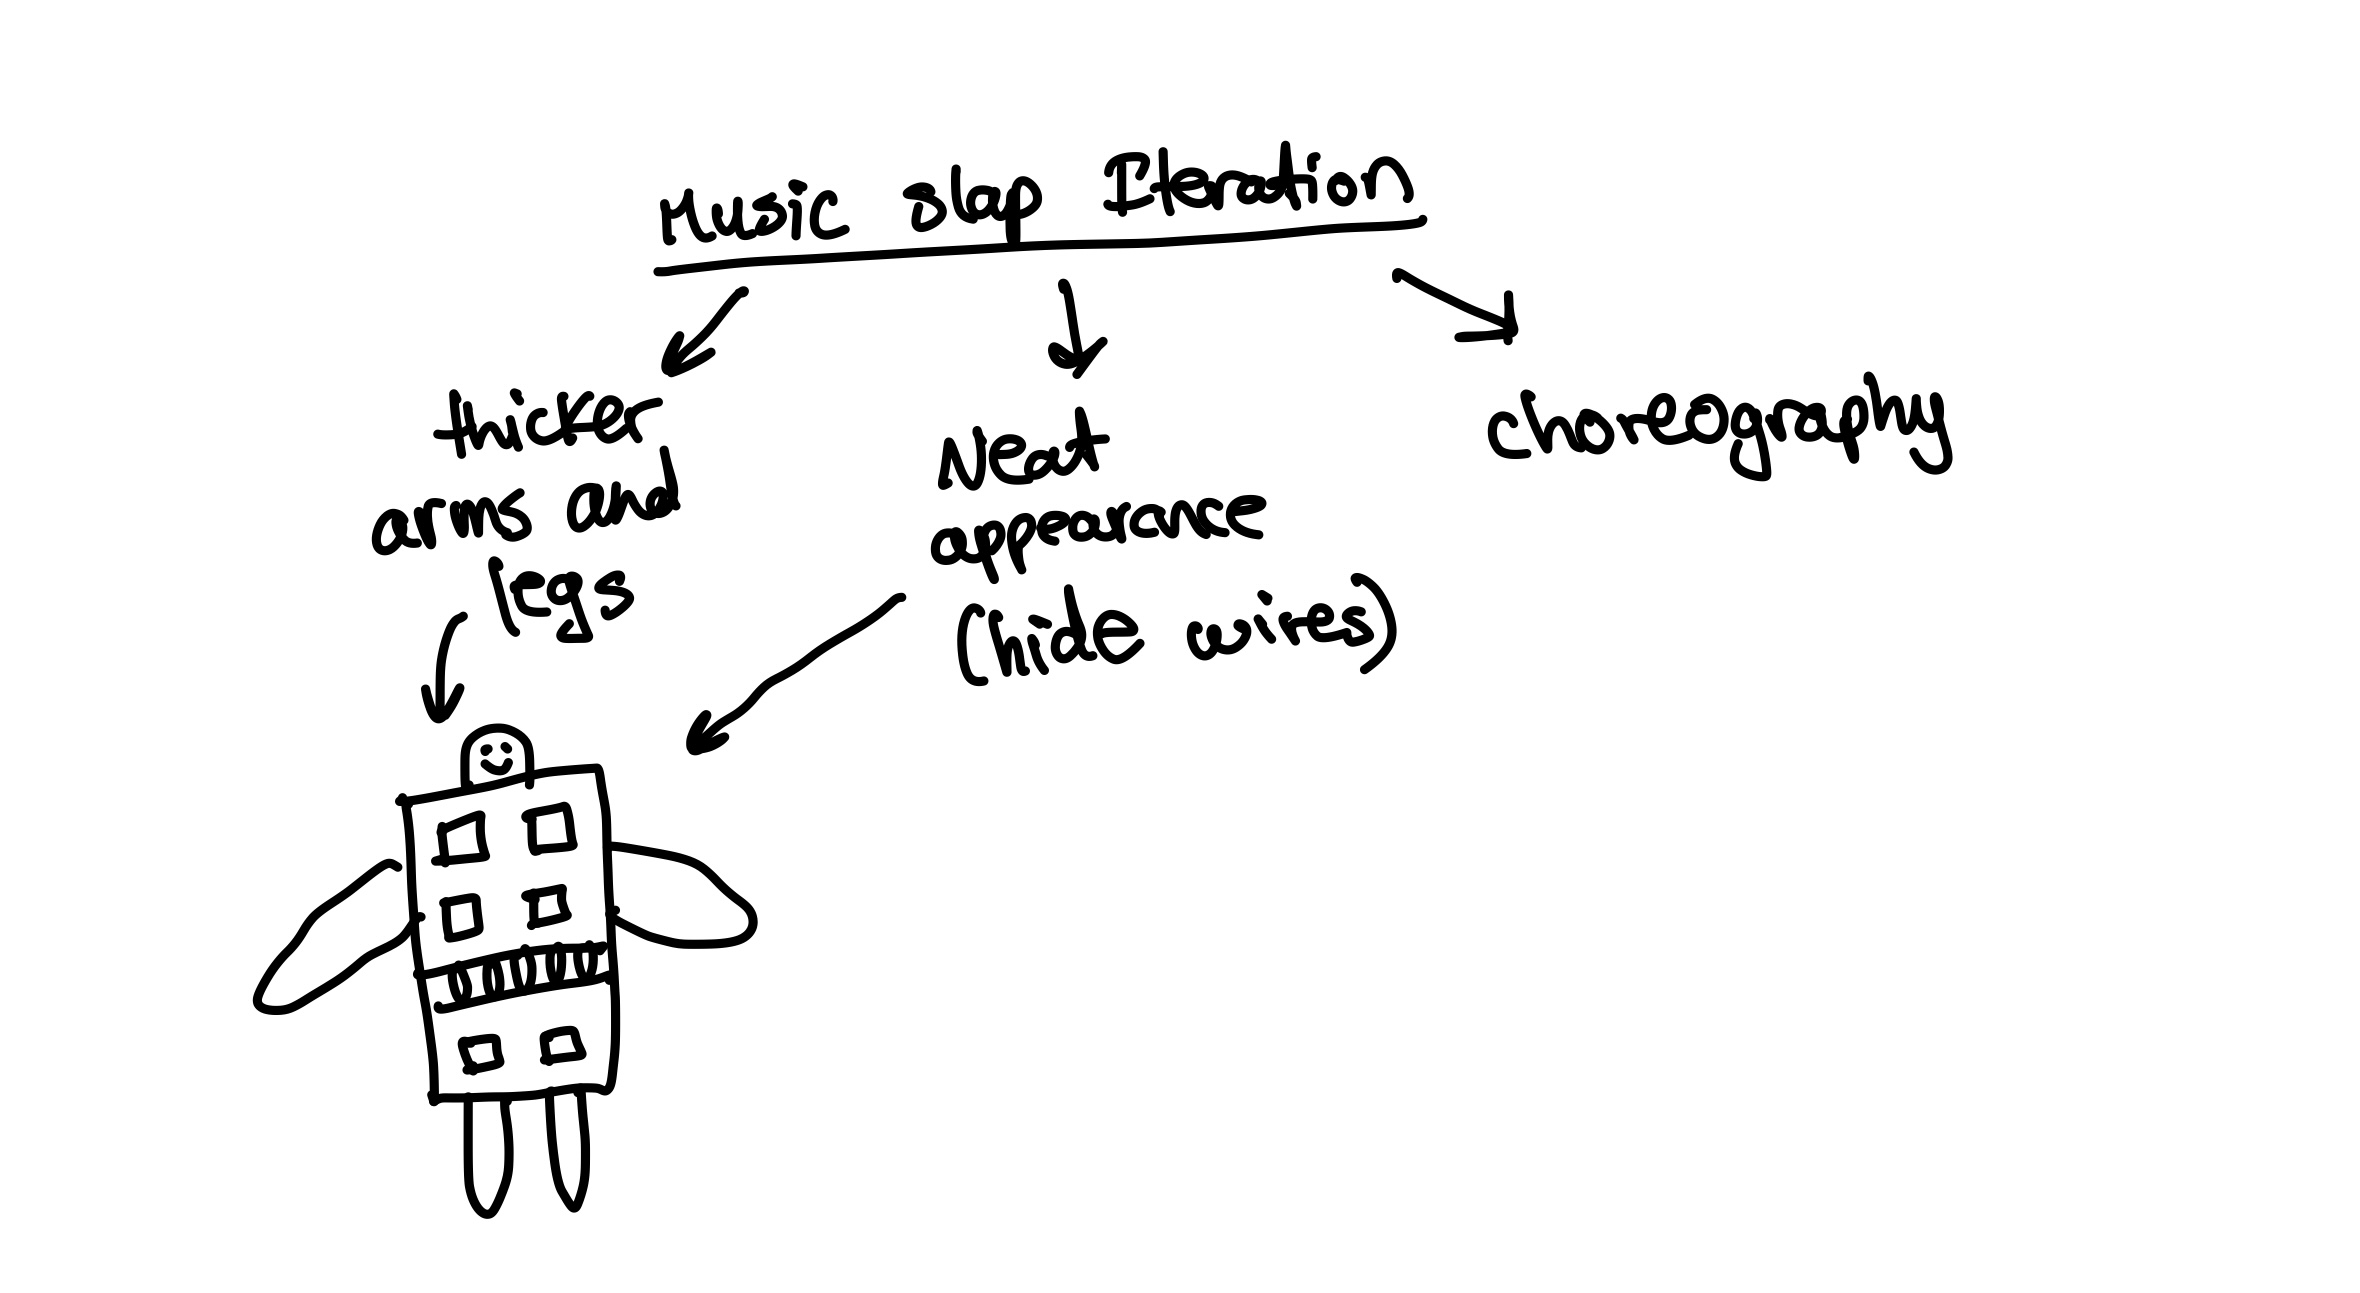 Music slap Iteration
thicker
arms and
legs
Neat
appearance
(hide wires)
choreography